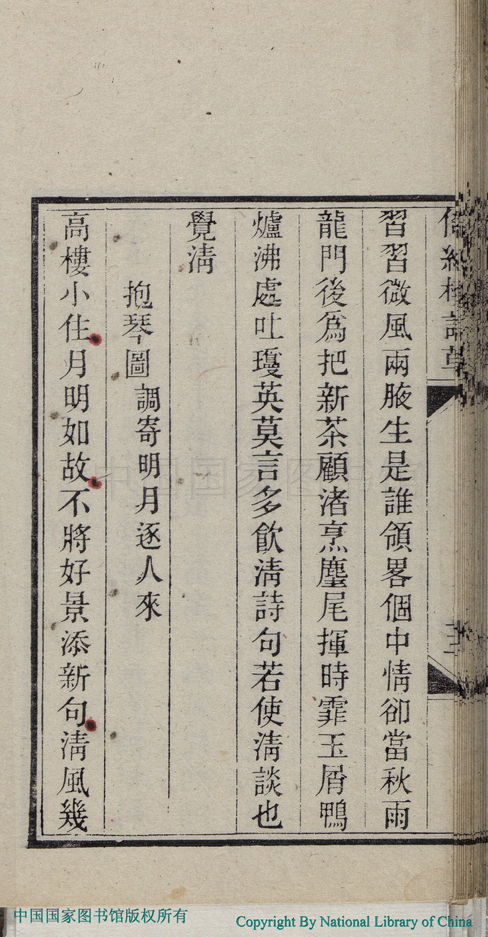 習習微風兩腋生是誰領畧個中情卻當秋雨
龍門後爲把新茶顧渚烹麈尾揮時霏玉屑鴨
爐沸處吐瓊英莫言多飲淸詩句若使淸談也
覺淸
抱琴圖調寄明月逐人來
高樓小住月明如故不將好景添新句淸風幾
中国国家图书馆版权所有
Copyright By National Library of China